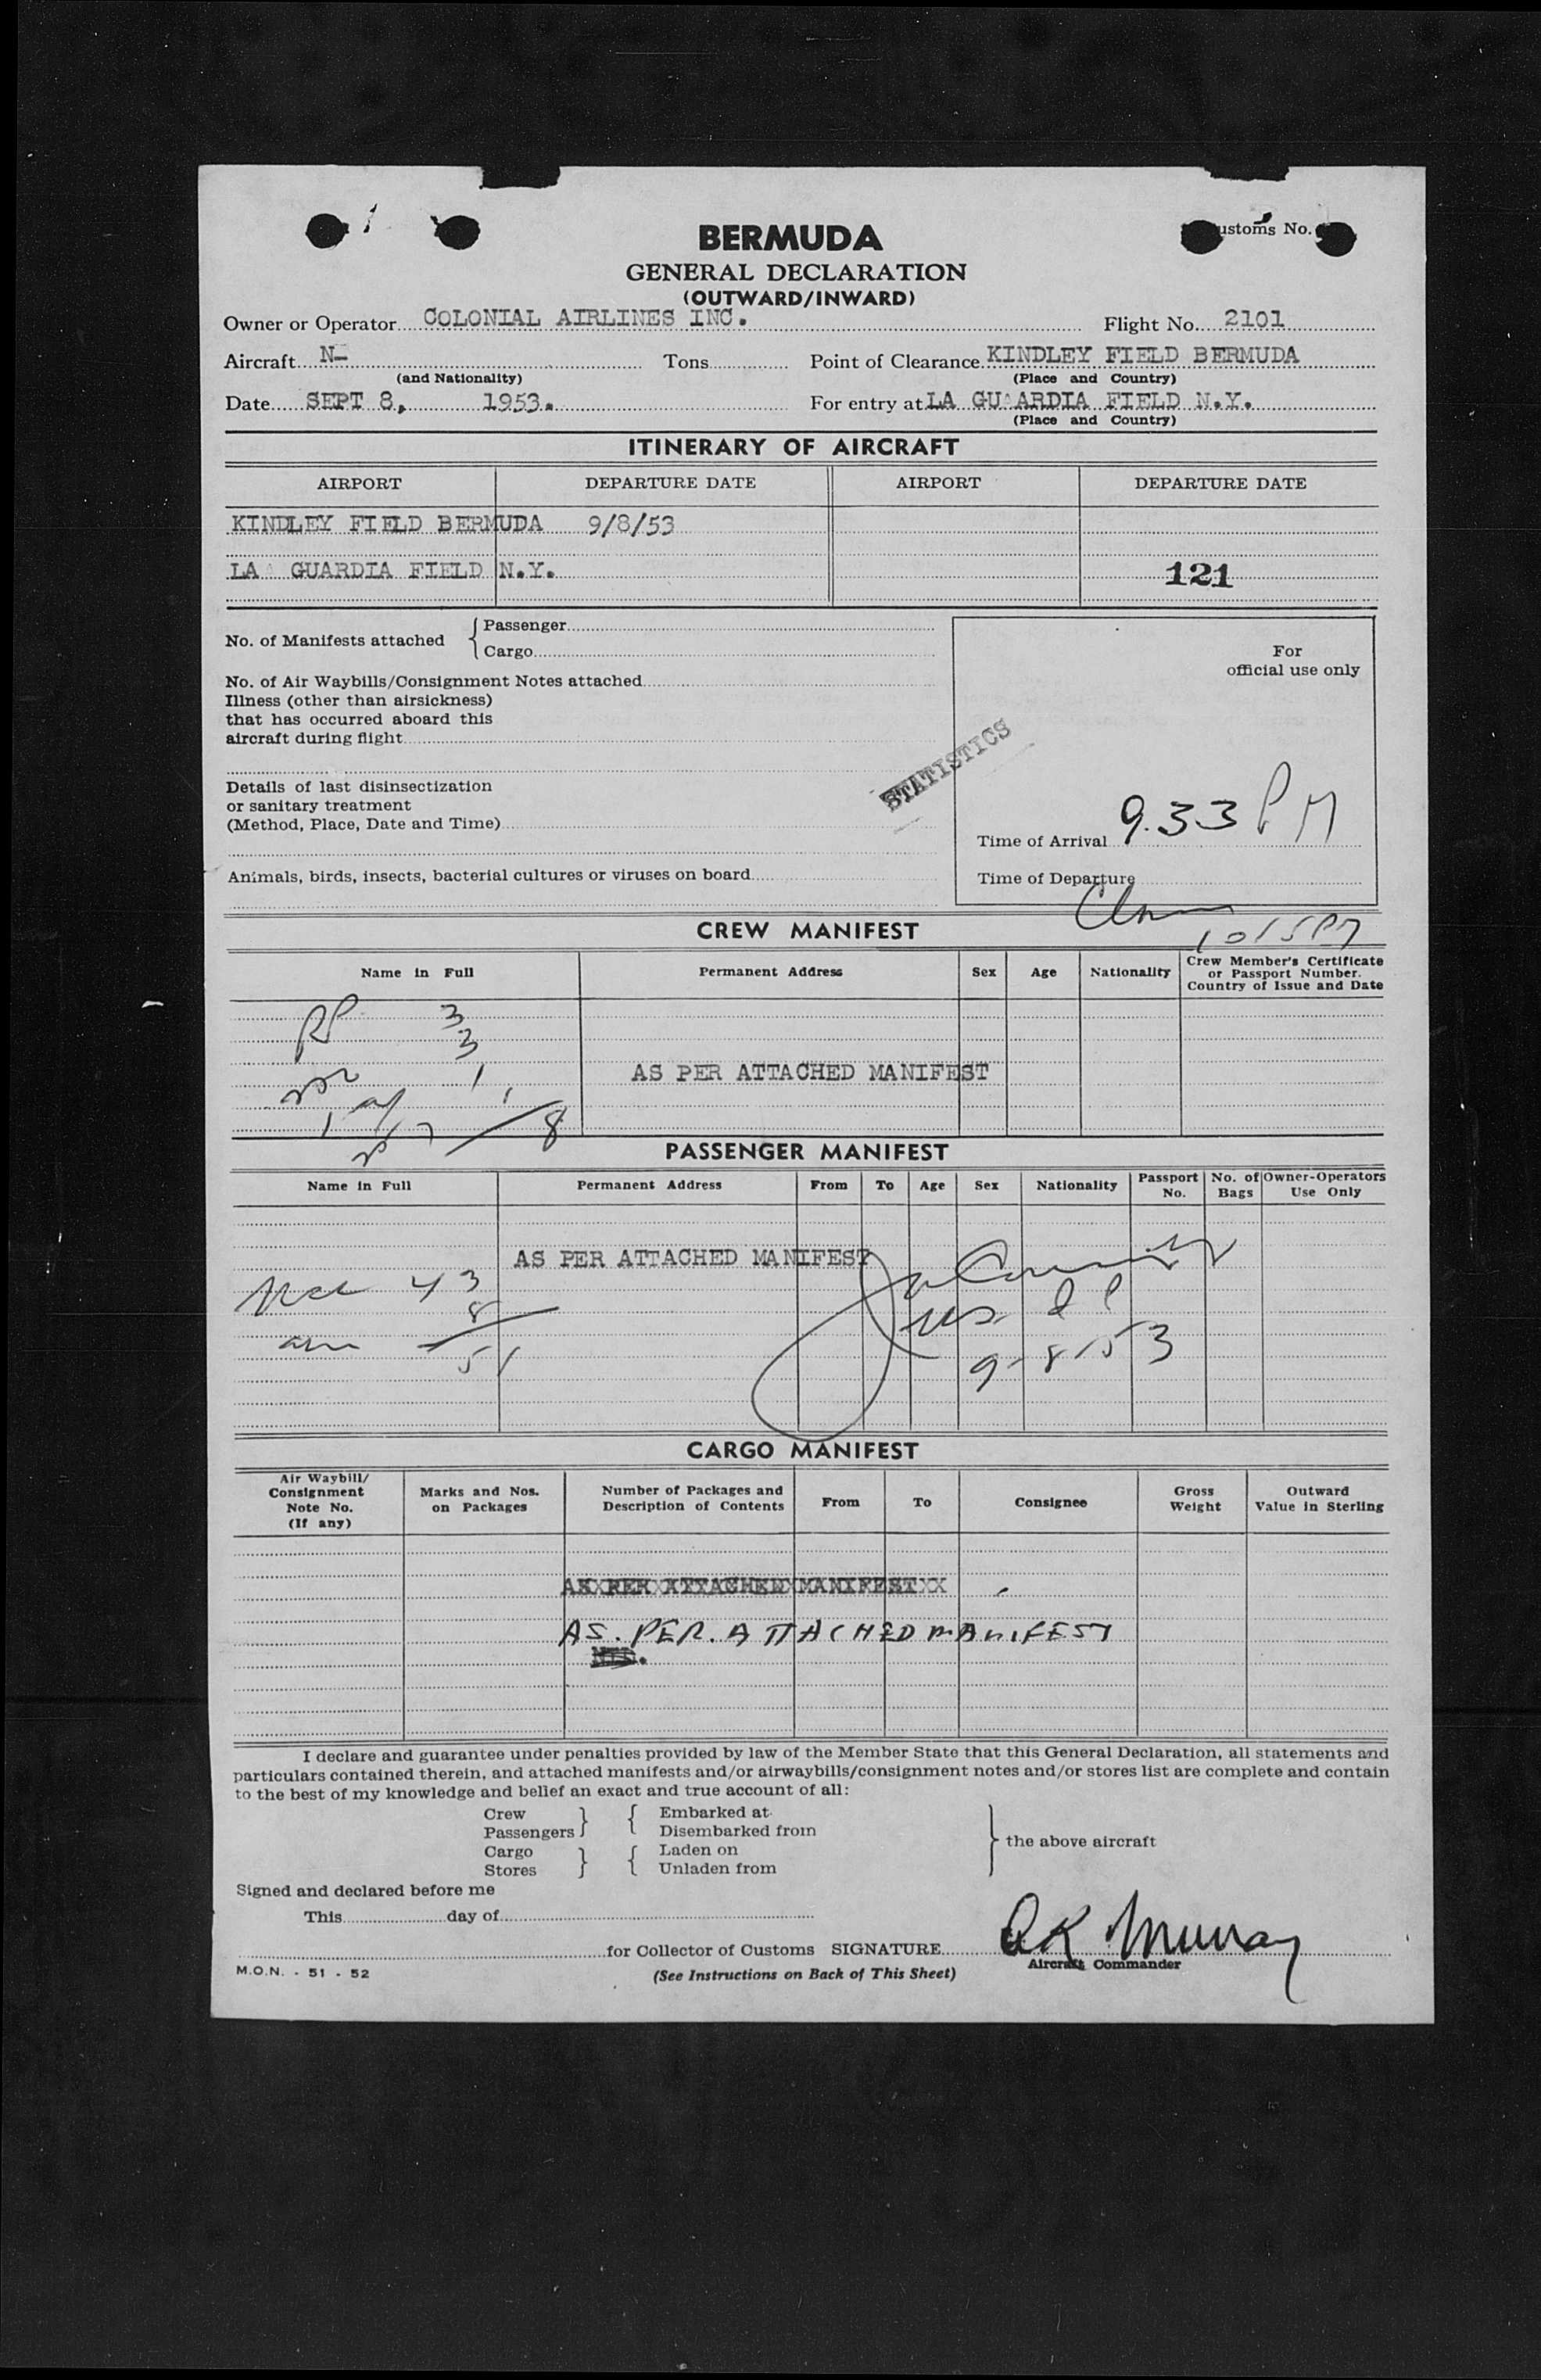 BERMUDA
ustoms No.
GENERAL DECLARATION
(OUTWARD/INWARD)
Owner or Operator COLONIAL AIRLINES INC. Flight No. 2101
Aircraft N- Tons Point of Clearance KINDLEY FIELD BERMUDA
(and Nationality) (Place and Country)
Date SEPT 8, 1953. For entry at LA GUARDIA FIELD N.Y.
(Place and Country)
ITINERARY OF AIRCRAFT
AIRPORT DEPARTURE DATE AIRPORT DEPARTURE DATE
KINDLEY FIELD BERMUDA 9/8/53
LA GUARDIA FIELD N.Y.
121
No. of Manifests attached { Passenger
Cargo
For
official use only
No. of Air Waybills/Consignment Notes attached
Illness (other than airsickness)
that has occurred aboard this
aircraft during flight
STATISTICS
Details of last disinsectization
or sanitary treatment
(Method, Place, Date and Time)
Time of Arrival 9.33 PM
Animals, birds, insects, bacterial cultures or viruses on board
Time of Departure
1015 PM
CREW MANIFEST
Name in Full Permanent Address Sex Age Nationality Crew Member's Certificate
or Passport Number.
Country of Issue and Date
3
3
1
AS PER ATTACHED MANIFEST
8
PASSENGER MANIFEST
Name in Full Permanent Address From To Age Sex Nationality Passport No. No. of Bags Owner-Operators Use Only
AS PER ATTACHED MANIFEST
43
8
51
9-8-53
CARGO MANIFEST
Air Waybill/ Consignment Note No. (If any) Marks and Nos. on Packages Number of Packages and Description of Contents From To Consignee Gross Weight Outward Value in Sterling
AS PER ATTACHED MANIFEST
AS. PER. ATTACHED MANIFEST
NIL.
I declare and guarantee under penalties provided by law of the Member State that this General Declaration, all statements and
particulars contained therein, and attached manifests and/or airwaybills/consignment notes and/or stores list are complete and contain
to the best of my knowledge and belief an exact and true account of all:
Crew } { Embarked at
Passengers } { Disembarked from
} the above aircraft
Cargo } { Laden on
Stores } { Unladen from
Signed and declared before me
This day of
for Collector of Customs SIGNATURE OK Murray
Aircraft Commander
M.O.N. - 51 - 52
(See Instructions on Back of This Sheet)